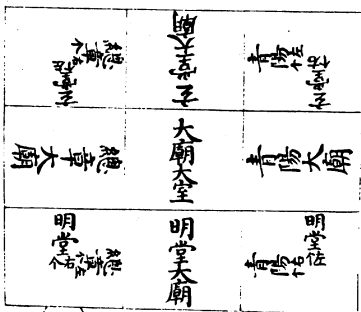 總章右个
玄堂
玄堂大廟
青陽左个
玄堂
總章大廟
大廟大室
青陽大廟
明堂右个
總章左个
明堂大廟
明堂左个
青陽右个